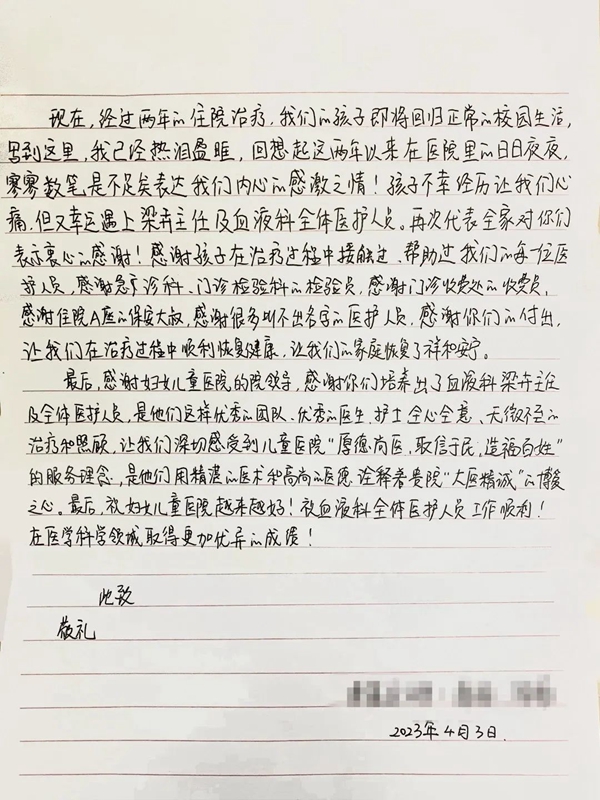 现在，经过两年的住院治疗，我们的孩子即将回归正常的校园生活，
写到这里，我已经热泪盈眶，回想起这两年以来在医院里的日日夜夜，
寥寥数笔是不足矣表达我们内心的感激之情！孩子不幸经历让我们心
痛，但又幸运遇上梁卉主任及血液科全体医护人员。再次代表全家对你们
表示衷心的感谢！感谢孩子在治疗过程中接触过、帮助过我们的每一位医
护人员，感谢急诊科、门诊检验科的检验员，感谢门诊收费处的收费员，
感谢住院A座的保安大叔，感谢很多叫不出名字的医护人员，感谢你们的付出，
让我们在治疗过程中顺利恢复健康，让我们的家庭恢复了祥和安宁。
最后，感谢妇女儿童医院的院领导，感谢你们培养出了血液科梁卉主任
及全体医护人员，是他们这样优秀的团队、优秀的医生、护士全心全意、无微不至的
治疗和照顾，让我们深切感受到儿童医院“厚德尚医，取信于民，造福百姓”
的服务理念，是他们用精湛的医术和高尚的医德诠释着贵院“大医精诚”的博爱
之心。最后，祝妇女儿童医院越来越好！祝血液科全体医护人员工作顺利！
在医学科学领域取得更加优异的成绩！
此致
敬礼
2023年4月3日.